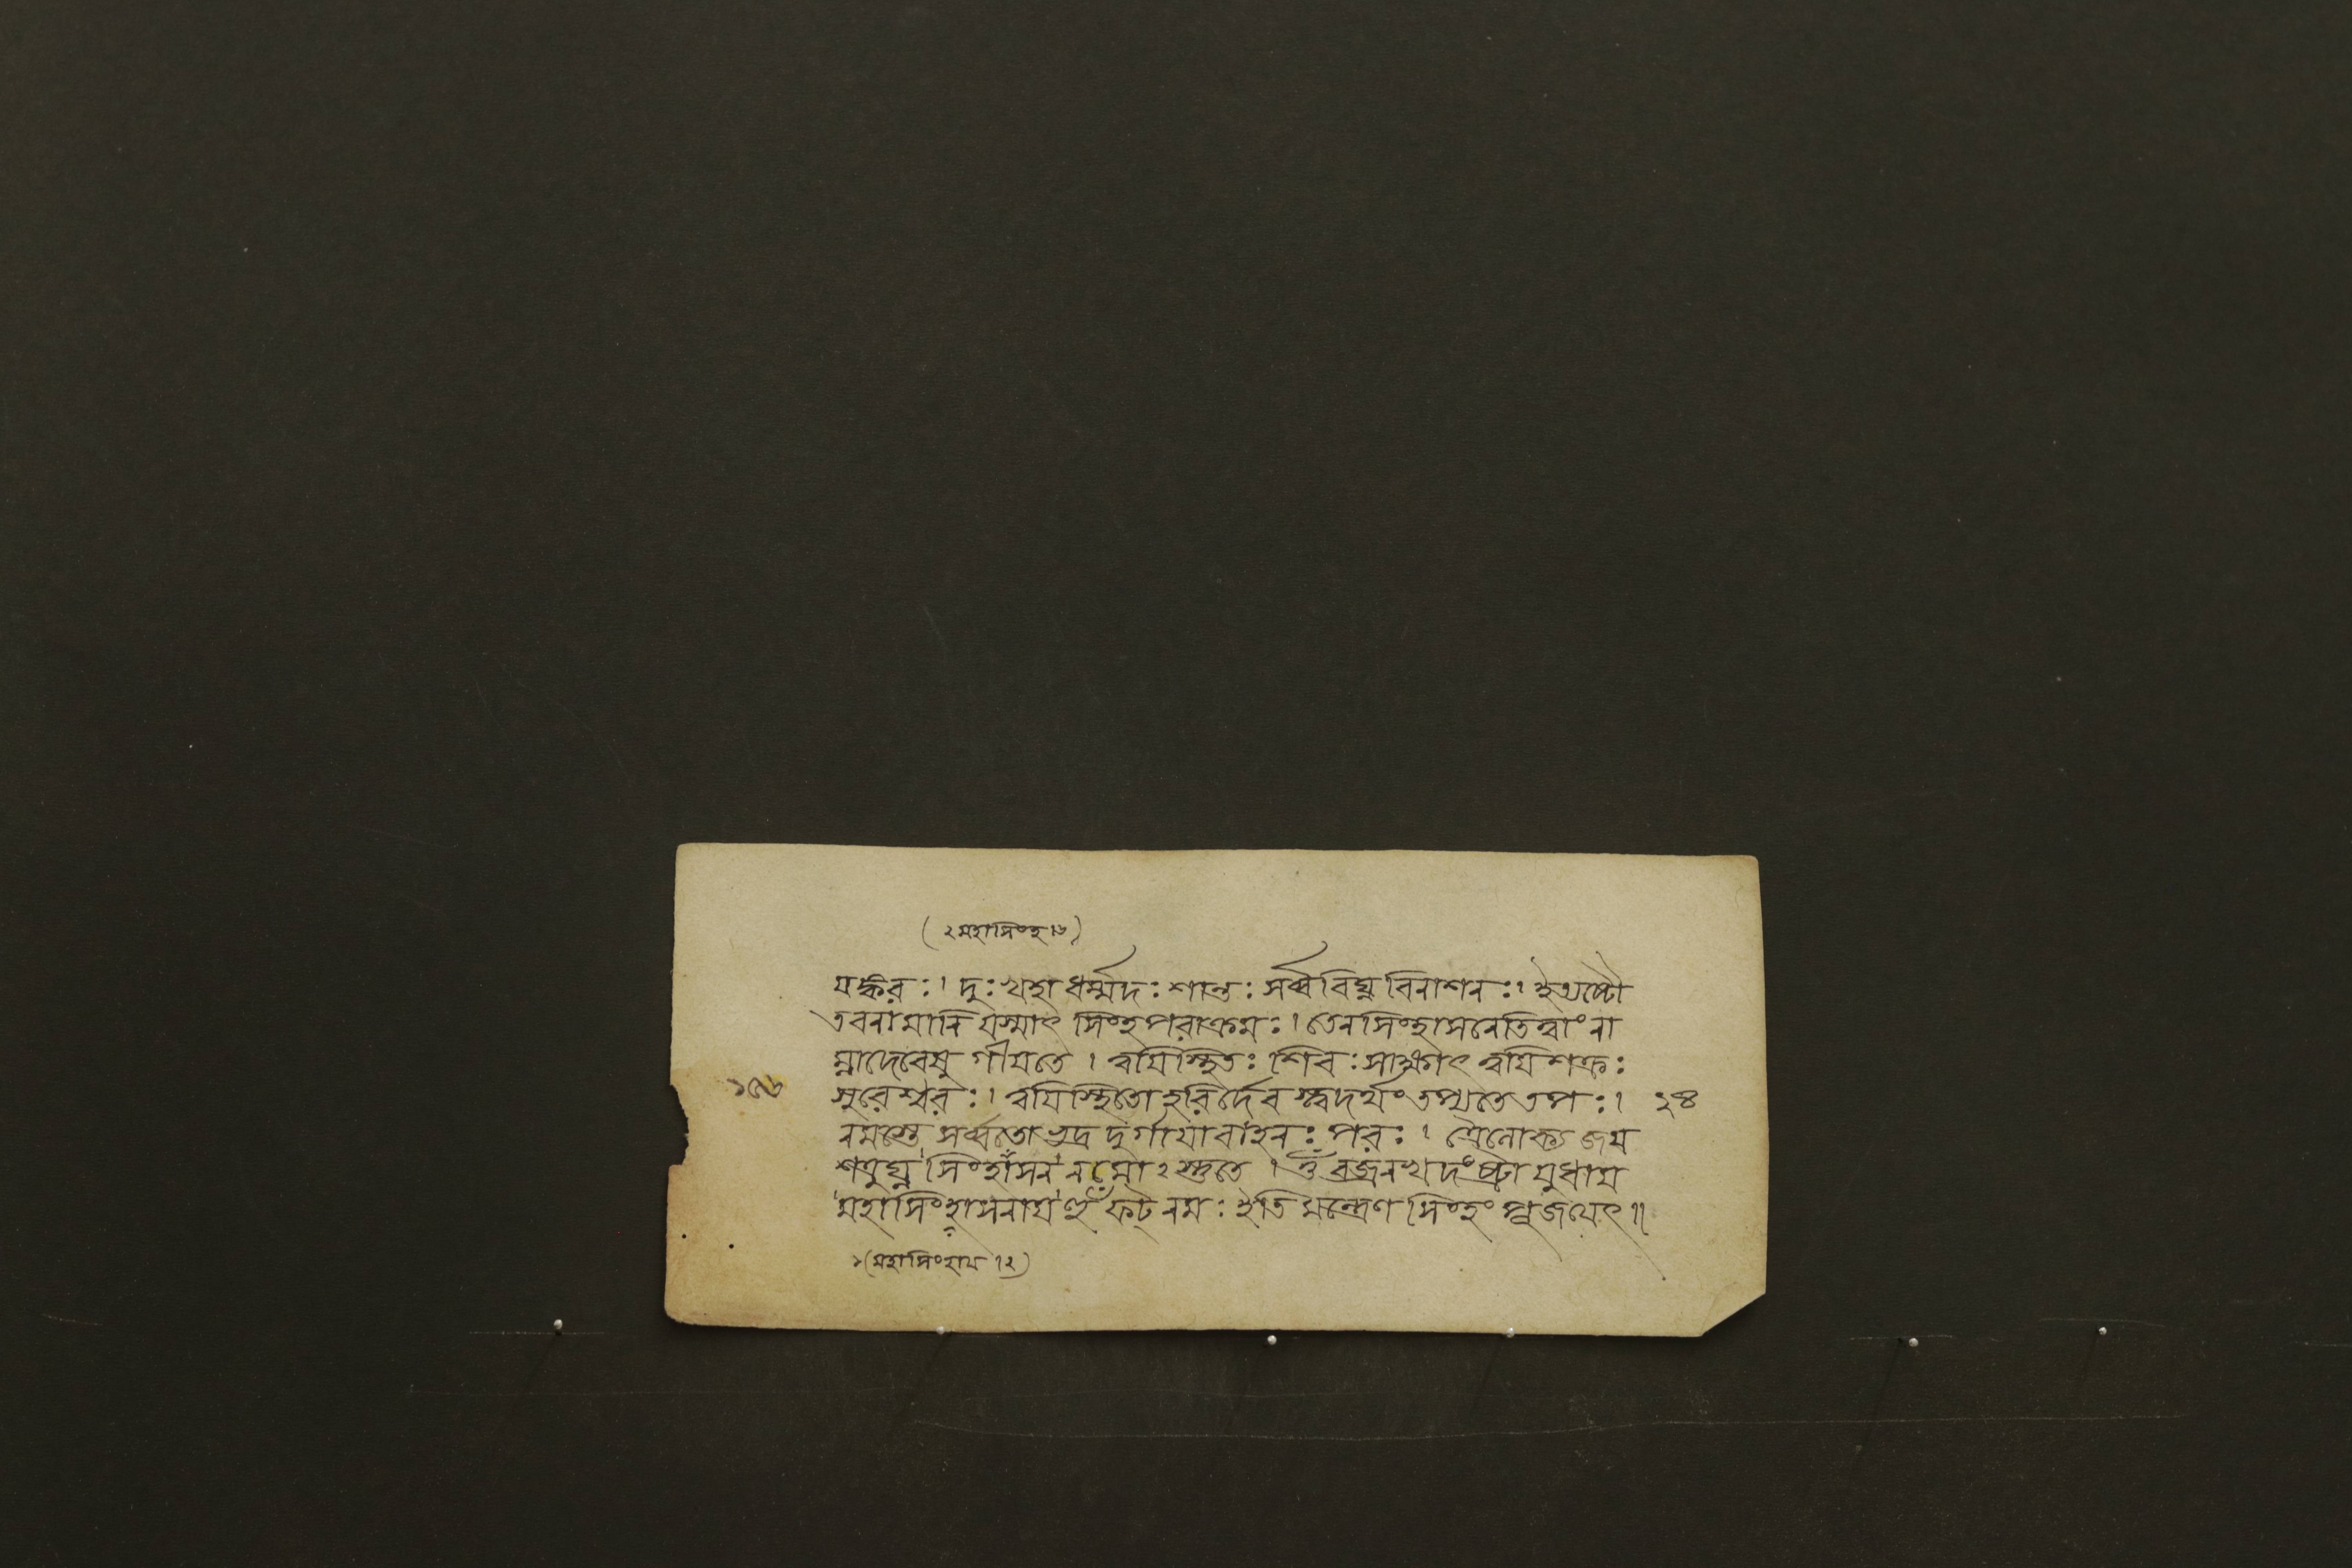 (২ মহাসিংহ ।৬)
যঙ্করঃ। দুঃখহা ধর্ম্মদঃ শান্তঃ সর্ব্ববিঘ্ন বিনাশনঃ। ইত্যষ্টৌ
তবনামানি যস্মাৎ সিংহপরাক্রমঃ। তেনসিংহাসনেতিত্বাং না
ম্নাদেবেষু গীয়তে। ত্বয়িস্থিতঃ শিবঃ সাক্ষাৎ ত্বয়িশক্রঃ
সুরেশ্বরঃ। ত্বয়িস্থিতো হরির্দেব স্ত্বদর্থং তপ্যতে তপঃ। ২৪
নমস্তে সর্ব্বতো ভদ্র দুর্গায়াবাহনঃ পরঃ। ত্রৈলোক্য জয়
শত্রুঘ্ন সিংহাসন নমোঽস্তুতে। ওঁ বজ্রনখদংষ্ট্রায়ুধায়
মহাসিংহাসনায় হূঁ ফট্ নমঃ ইতি মন্ত্রেণ সিংহং পূজয়েৎ॥
১ (মহাসিংহায় ।২)